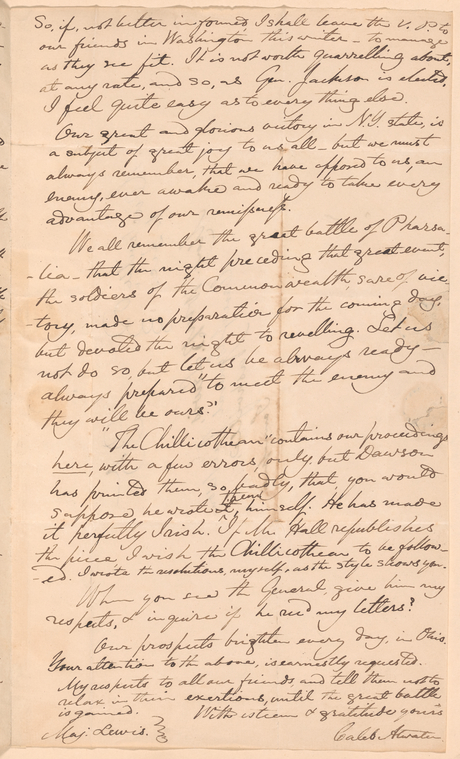 So, if, not better informed I shall leave the V. P. to
our friends in Washington this winter – to manage
as they see fit. It is not worth quarrelling about,
at any rate, and so, as Gen. Jackson is elected,
I feel quite easy as to every thing else.
Our great and glorious victory in N.Y. state, is
a subject of great joy to us all – but we must
always remember, that we have opposed to us, an
enemy, ever awake and ready to take every
advantage of our remissness.
We all remember the great battle of Pharsa-
-lia – that the night preceding that great event,
the soldiers of the Commonwealth, sure of vic-
-tory, made no preparation for the coming day,
but devoted the night to revelling. Let us
not do so, but let us be always ready –
always prepared "to meet the enemy and
they will be ours."
"The Chillicothean" contains our proceedings
here, with a few errors, only, but Dawson
has printed them, so badly, that, you would
suppose, he wrote them, himself. He has made
it perfectly Irish. If Mr. Hall republishes
the piece, I wish the Chillicothean to be follow-
-ed. I wrote the resolutions, myself, as the style shows you.
When you see the General, give him my
respects, & inquire if he rec'd my letters?
Our prospects brighten every day, in Ohio.
Your attention to the above, is earnestly requested.
My respects to all our friends and tell them not to
relax in their exertions, until the great battle
is gained. With esteem & gratitude yours
Maj. Lewis. Caleb Atwater